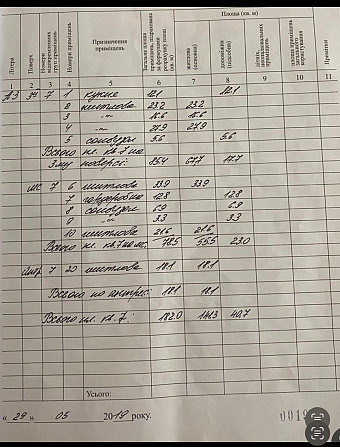 Площа (кв. м)
Літера
Поверх
Номери відокремлених груп приміщень
Номери приміщень
Призначення приміщень
Загальна площа приміщень, підрахована за формулами розрахунку площі (кв. м)
житлова (основна)
допоміжна (підсобна)
площа приміщень загального користування
Примітки
1 2 3 4 5 6 7 8 9 10 11
А3 3й 7 1 кухня 12.1 12.1
2 житлова 23.2 23.2
3 -"- 16.6 16.6
4 -"- 27.9 27.9
5 санвузол 5.6 5.6
Всього пл. кв. 7 на
3му поверсі: 85.4 67.7 17.7
мс 7 6 житлова 33.9 33.9
7 гардеробна 12.8 12.8
8 санвузол 6.9 6.9
9 -"- 3.3 3.3
10 житлова 21.6 21.6
Всього пл. кв. 7 на мс: 78.5 55.5 23.0
антр 7 20 житлова 18.1 18.1
Всього по антресолі: 18.1 18.1
Всього пл. кв. 7: 182.0 141.3 40.7
Усього:
« 29 » 05 2019 року.
0019